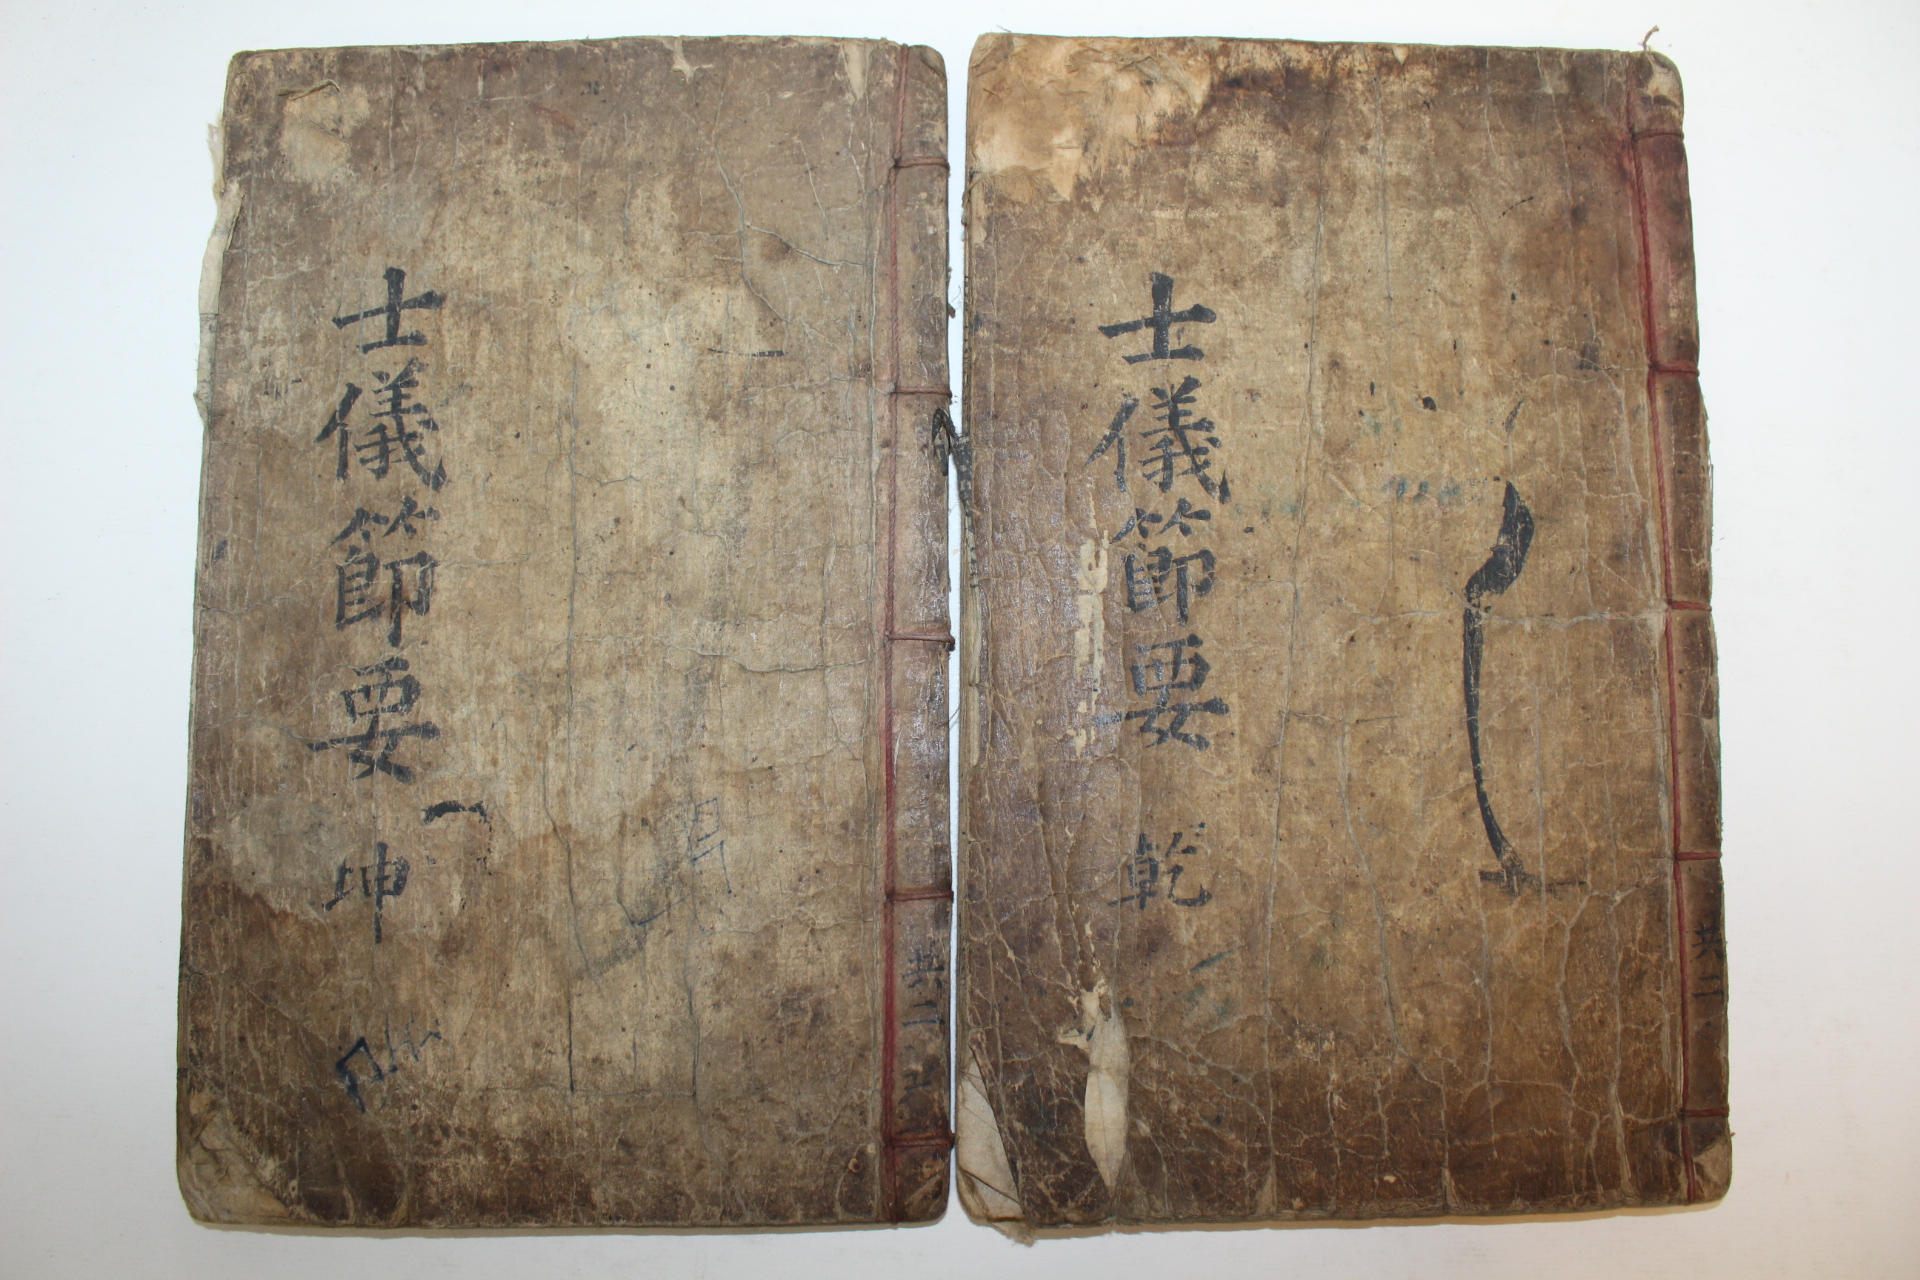 士儀節要 乾
共二
士儀節要 坤
共二